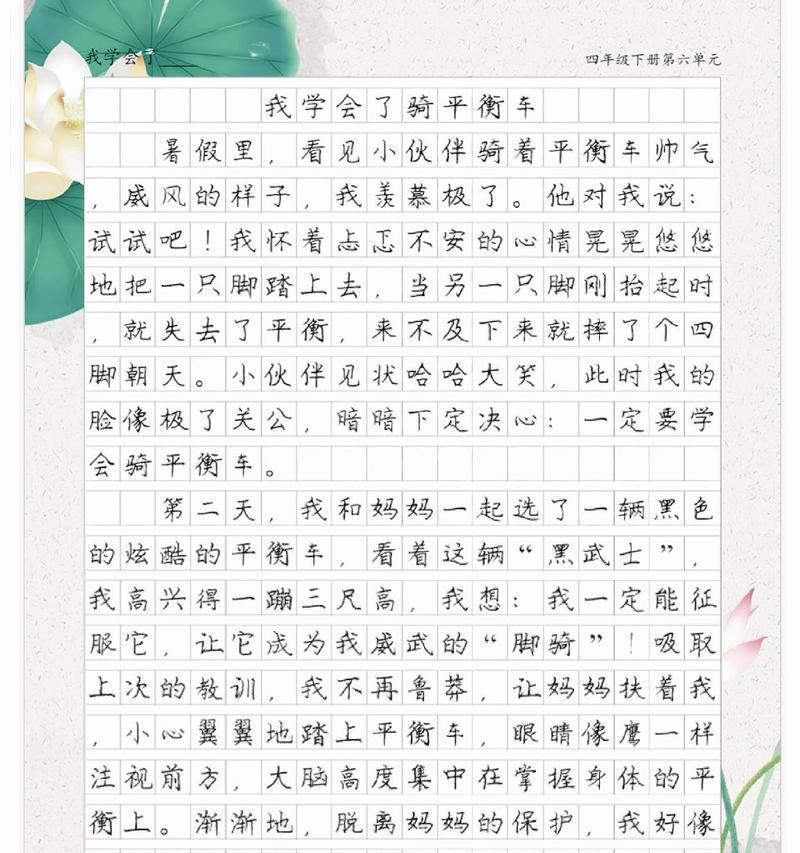 我学会了____
四年级下册第六单元
我学会了骑平衡车
暑假里，看见小伙伴骑着平衡车帅气
，威风的样子，我羡慕极了。他对我说：
试试吧！我怀着忐忑不安的心情晃晃悠悠
地把一只脚踏上去，当另一只脚刚抬起时
，就失去了平衡，来不及下来就摔了个四
脚朝天。小伙伴见状哈哈大笑，此时我的
脸像极了关公，暗暗下定决心：一定要学
会骑平衡车。
第二天，我和妈妈一起选了一辆黑色
的炫酷的平衡车，看着这辆“黑武士”，
我高兴得一蹦三尺高，我想：我一定能征
服它，让它成为我威武的“脚骑”！吸取
上次的教训，我不再鲁莽，让妈妈扶着我
，小心翼翼地踏上平衡车，眼睛像鹰一样
注视前方，大脑高度集中在掌握身体的平
衡上。渐渐地，脱离妈妈的保护，我好像